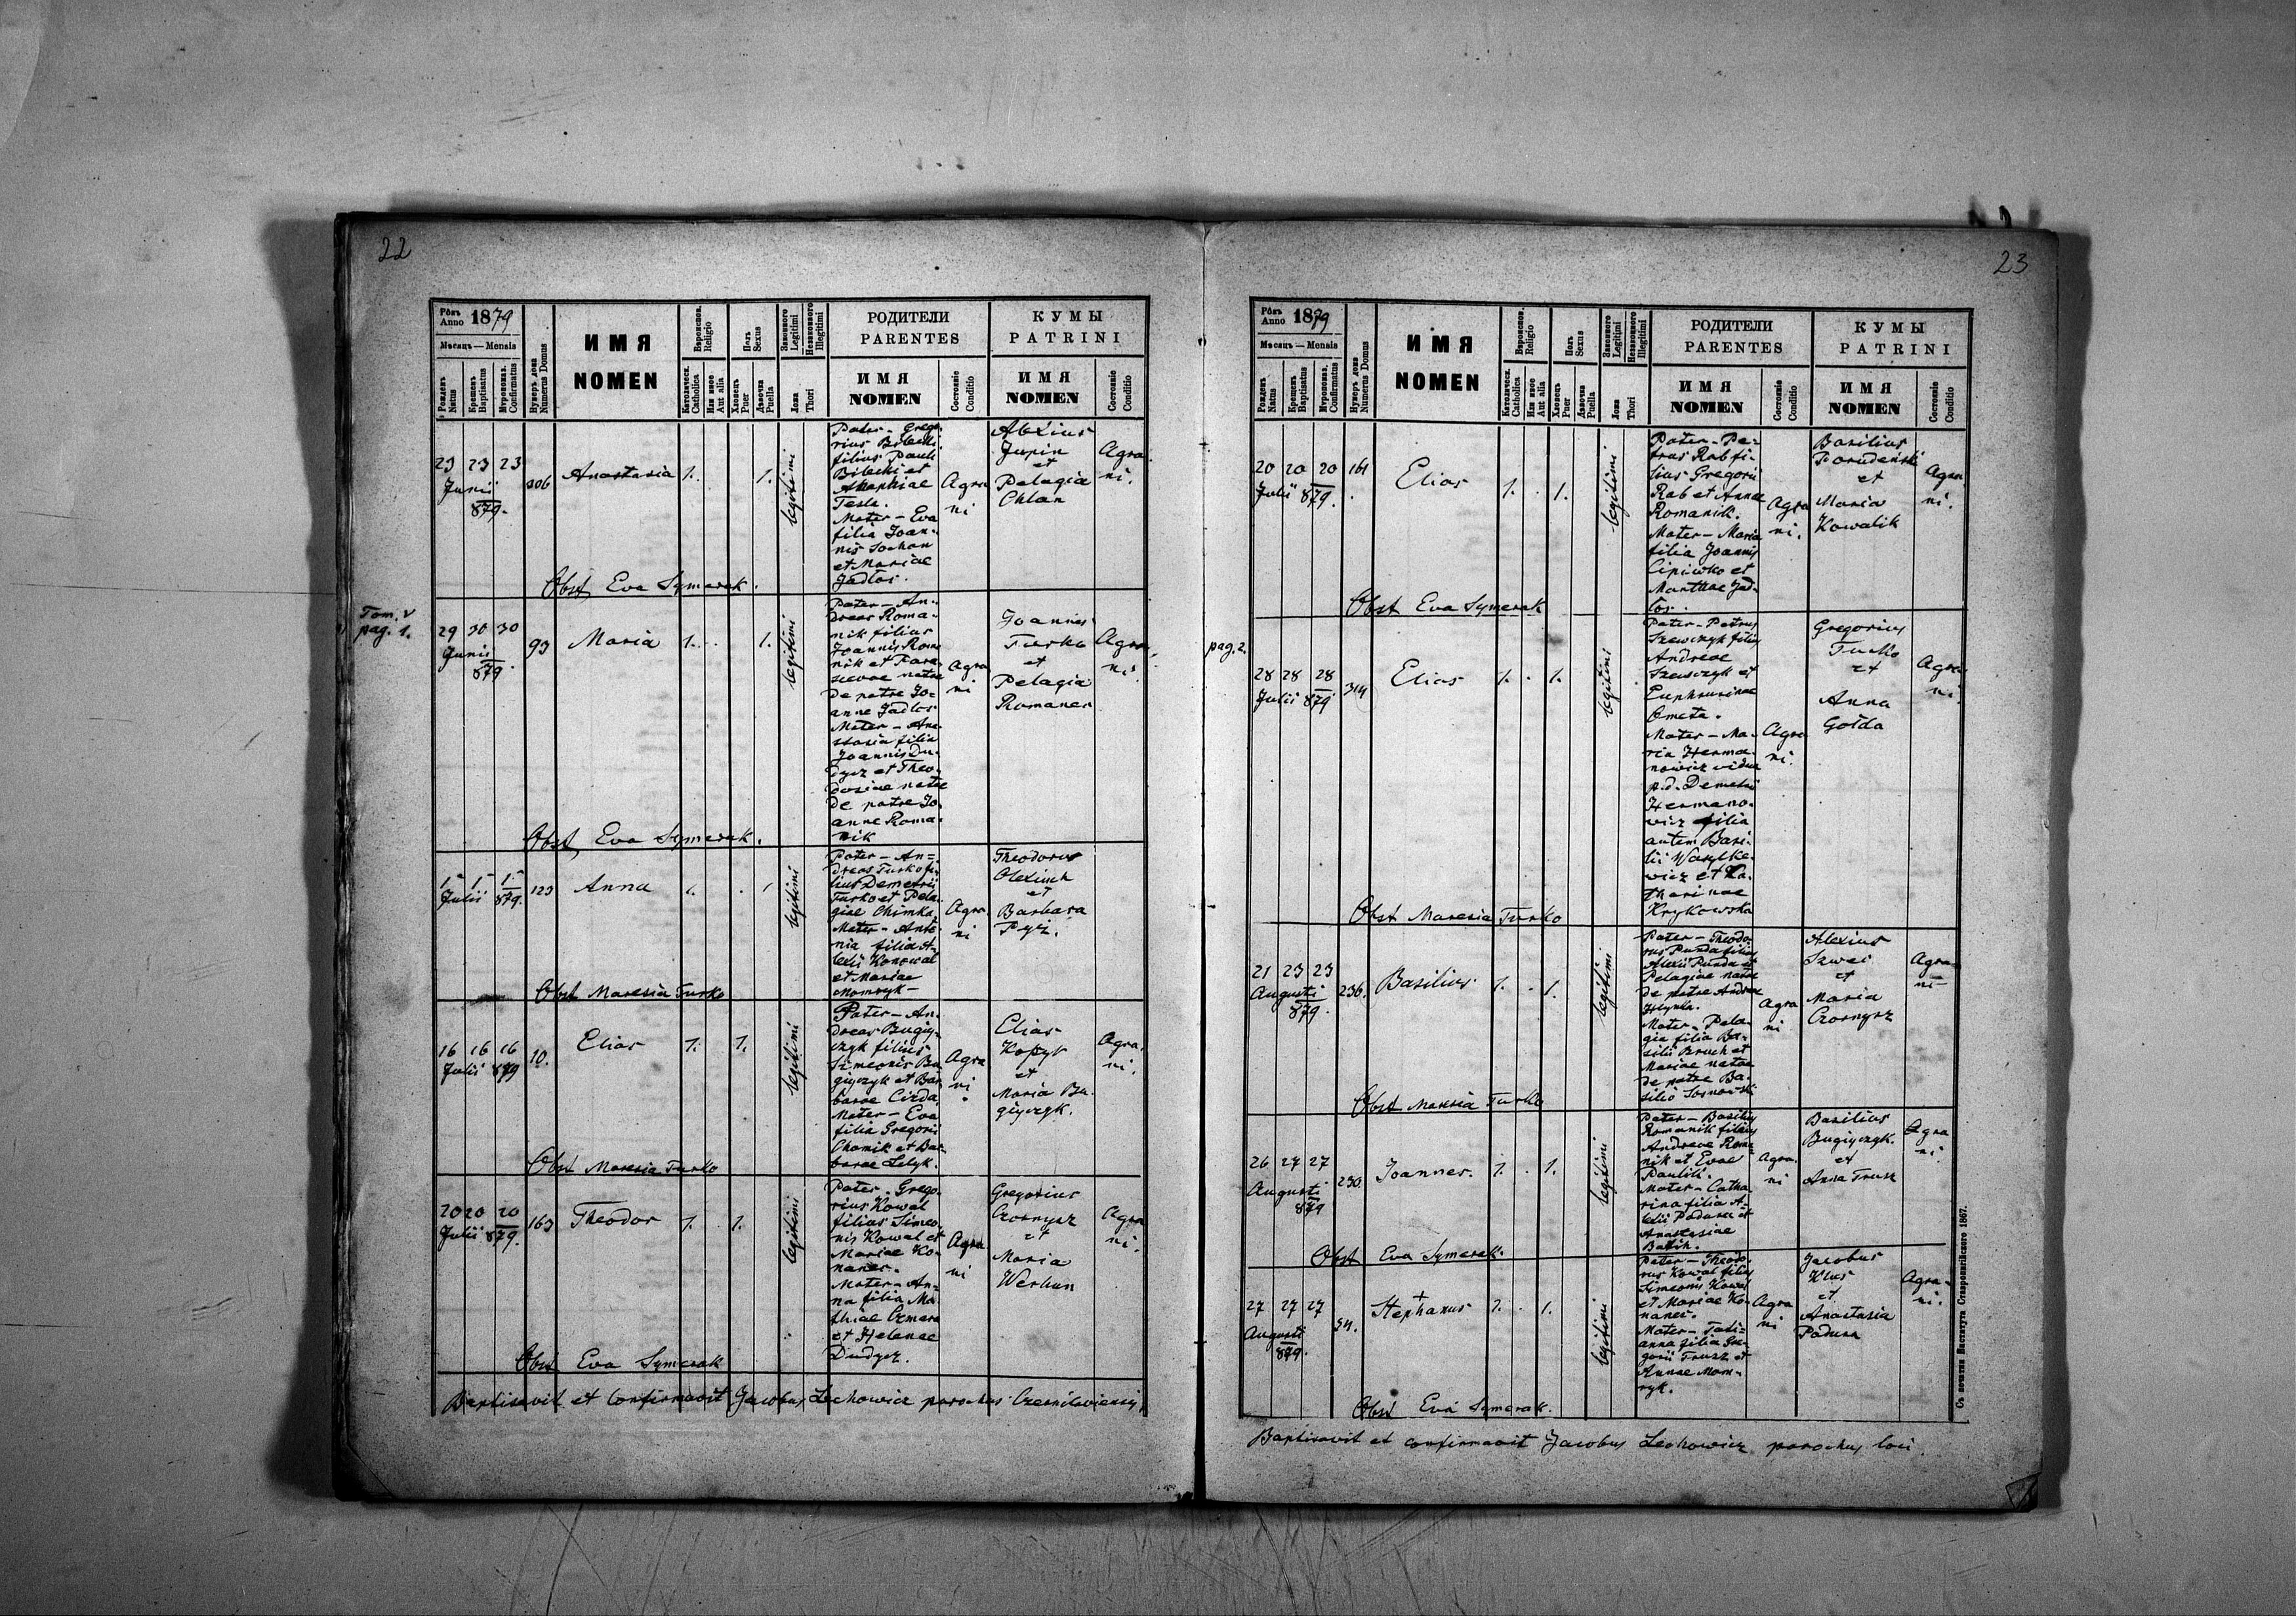 22
Рôкъ Anno 1879
Мѣсяцъ — Mensis
Рожденъ Natus
Крещенъ Baptisatus
Мѵропомаз. Confirmatus
Нумеръ дома Numerus Domus
ИМЯ NOMEN
Вѣроиспов. Religio
Католическ. Catholica
Или иное Aut alia
Полъ Sexus
Хлопецъ Puer
Дѣвочка Puella
Законного Legitimi
Незаконного Illegitimi
Ложа Thori
РОДИТЕЛИ PARENTES
ИМЯ NOMEN
Состояніе Conditio
КУМЫ PATRINI
ИМЯ NOMEN
Состояніе Conditio
23 23 23
Junii
879.
206
Anastasia
1.
1.
legitimi
Pater - Grego-
rius Bilecki
filius Pauli
Bilecki et
Tesla.
Mater - Eva
filia Joan-
nis Sochan
et Mariae
Jadlos.
Agra
ni
Alexius
Jupin
et
Pelagia
Chlan
Agra
ni.
Obst Eva Symerak.
Tom. V
pag. 1.
29 30 30
Junii
879
93
Maria
1.
1.
legitimi
Pater - An-
dreas Roma-
nik filius
Joannis Roma
nik et Para-
scevae natae
de patre Jo-
anne Jadlos
Mater - Ana
stasia filia
Joannis Du-
dycz et Theo-
dosiae natae
de patre Jo-
anne Roma-
nik
Agra
ni
Joannes
Turko
et
Pelagia
Romanek
Agra
ni.
Obst Eva Symerak.
1 1 1
Julii 879.
123
Anna
1.
1
legitimi
Pater - An=
dreas Turko fi-
lius Demetrii
Turko et Pela-
giae Chimka
Mater - Anto
nia filia A-
lexii Konowal
et Mariae
Momryk -
Agra
ni
Theodorus
Olexiuk
et
Barbara
Pyz.
Obst Maresia Turko
16 16 16
Julii 879
10.
Elias
1.
1.
legitimi
Pater - An-
dreas Bugiy-
czyk filius
Simeonis Bu
giyczyk et Bar
barae Cizda
Mater - Eva
filia Gregorii
Chomik et Bar-
barae Lelyk.
Agra
ni
Elias
Kopyt
et
Maria Bu-
giyczyk.
Agra.
ni.
Obst Maresia Turko
20 20 20
Julii 879.
163
Theodor
1.
1.
legitimi
Pater - Grego-
rius Kowal
filius Simeo-
nis Kowal et
Mariae Ko-
nanec.
Mater - An-
na filia Ma
thiae Czmara
et Helenae
Dudycz.
Agra
ni
Gregorius
Czornysz
et
Maria
Werhun
Agra
ni.
Obst Eva Symerak
Baptisavit et Confirmavit Jacobus Lechowicz parochus Czerniloviensis
23
Рôкъ Anno 1879
Мѣсяцъ — Mensis
Рожденъ Natus
Крещенъ Baptisatus
Мѵропомаз. Confirmatus
Нумеръ дома Numerus Domus
ИМЯ NOMEN
Вѣроиспов. Religio
Католическ. Catholica
Или иное Aut alia
Полъ Sexus
Хлопецъ Puer
Дѣвочка Puella
Законного Legitimi
Незаконного Illegitimi
Ложа Thori
РОДИТЕЛИ PARENTES
ИМЯ NOMEN
Состояніе Conditio
КУМЫ PATRINI
ИМЯ NOMEN
Состояніе Conditio
20 20 20
Julii 879.
161
Elias
1.
1.
legitimi
Pater - Pe-
trus Rab fi-
lius Gregorii
Rab et Annae
Romanik.
Mater - Maria
filia Joannis
Cipiwko et
Marthae Jad-
los.
Agra
ni.
Basilius
Porudeński
et
Maria
Kowalik
Agra
ni.
Obst Eva Symerak
pag. 2.
28 28 28
Julii 879
314
Elias
1.
1.
legitimi
Pater - Petrus
Szewczyk filius
Andreae
Szewczyk et
Euphrosinae
Ometa.
Mater - Ma-
ria Herma-
nowicz vidua
p. d. Demetrii
Hermano-
wicz filia
autem Basi-
lii Wasylke-
wicz et Ka-
tharinae
Krykowska
Agra
ni.
Gregorius
Turko
et
Anna
Goida
Agra
ni
Obst Maresia Turko
21 23 23
Augusti
879.
236.
Basilius
1.
1.
legitimi
Pater - Theodo-
rus Punda filius
Alexii Punda et
Pelagiae natae
de patre Andrea
Hlynka.
Mater - Pela-
gia filia Ba-
silii Bruch et
Mariae natae
de patre Ba-
silio Sosnowski
Agra
ni
Alexius
Szwei
et
Maria
Czornysz
Agra-
ni-
Obst Maresia Turko
26 27 27
Augusti
879
230.
Joannes.
1.
1.
legitimi
Pater - Basilius
Romanik filius
Andreae Roma
nik et Evae
Pauliti.
Mater - Catha
rina filia A-
lexii Padura et
Anastasiae
Batih.
Agra.
ni
Basilius
Bugiyczyk.
et
Anna Trusz
Agra
ni
Obst Eva Symerak.
27 27 27
Augusti
879.
54.
+
Stephanus
1.
1.
legitimi
Pater - Theodo
rus Kowal filius
Simeonis Kowal
et Mariae Ko-
nanec.
Mater - Tati=
anna filia Gre-
gorii Trusz et
Annae Mom-
ryk.
Agra
ni
Jacobus
Klus
et
Anastasia
Padura
Agra-
ni.
Obst Eva Symerak.
Baptisavit et confirmavit Jacobus Lechowicz parochus loci.
Съ печатни Института Ставропигійского 1867.